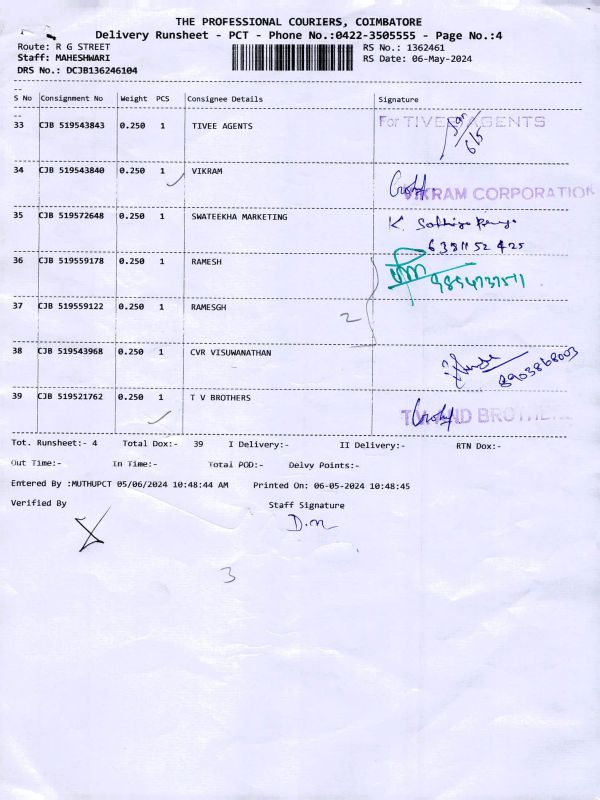 THE PROFESSIONAL COURIERS, COIMBATORE
Delivery Runsheet - PCT - Phone No.:0422-3505555 - Page No.:4
Route: R G STREET RS No.: 1362461
Staff: MAHESHWARI RS Date: 06-May-2024
DRS No.: DCJB136246104
S No Consignment No Weight PCS Consignee Details Signature
33 CJB 519543843 0.250 1 TIVEE AGENTS For TIVEE AGENTS
6/5
34 CJB 519543840 0.250 1 VIKRAM
VIKRAM CORPORATION
35 CJB 519572648 0.250 1 SWATEEKHA MARKETING K.
6381152425
36 CJB 519559178 0.250 1 RAMESH
37 CJB 519559122 0.250 1 RAMESGH
2
38 CJB 519543968 0.250 1 CVR VISUWANATHAN
8903868003
39 CJB 519521762 0.250 1 T V BROTHERS
Tot. Runsheet:- 4 Total Dox:- 39 I Delivery:- II Delivery:- RTN Dox:-
Out Time:- In Time:- Total POD:- Delvy Points:-
Entered By :MUTHUPCT 05/06/2024 10:48:44 AM Printed On: 06-05-2024 10:48:45
Verified By Staff Signature
3